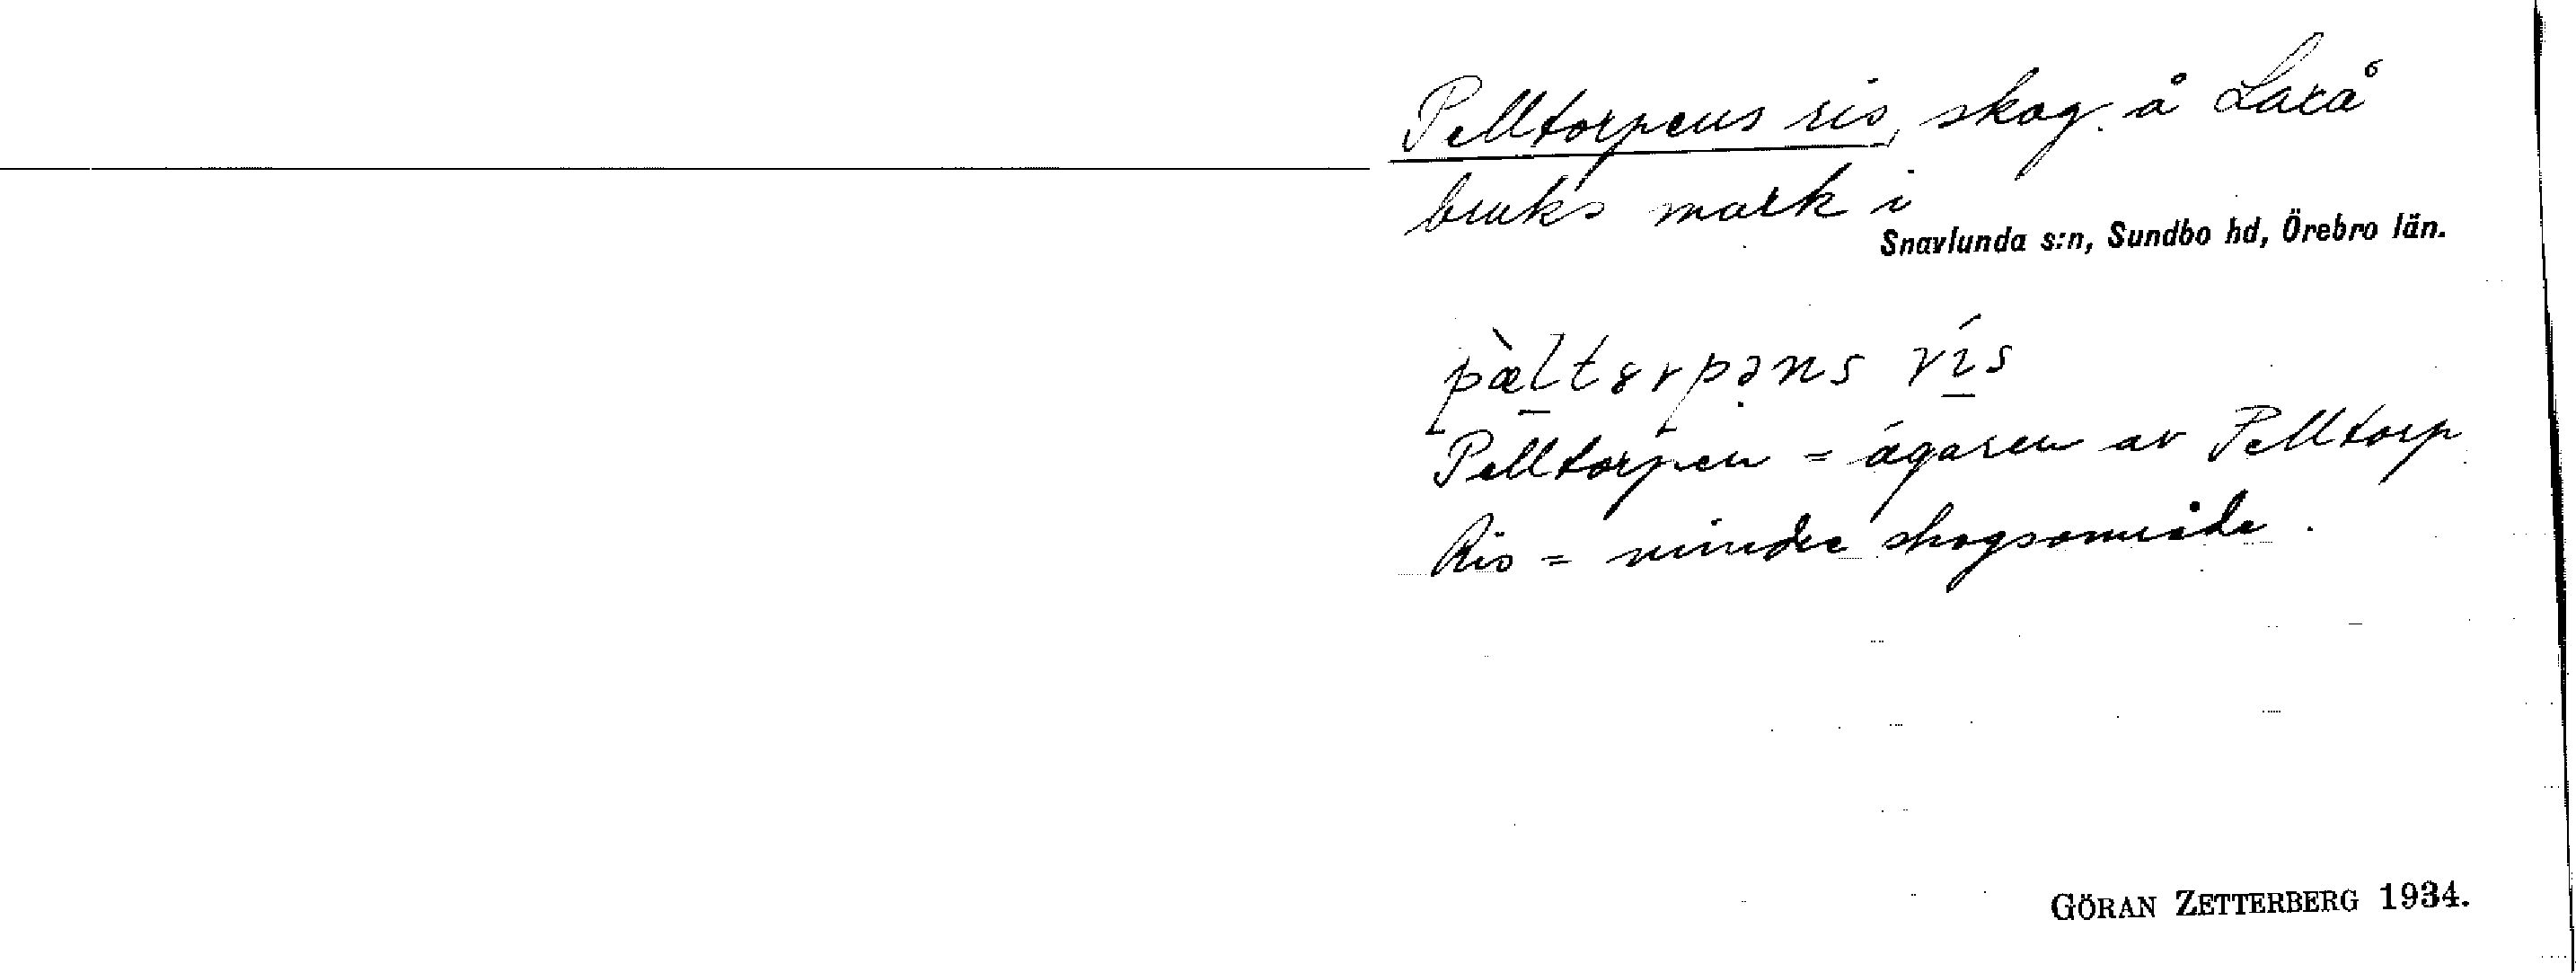 Pelltorpens ris, skog å Laxå
bruks mark i
Snavlunda s:n, Sundbo hd, Örebro län.
pæ̀ltɤrpəns rís
Pelltorpen = ägaren av Pelltorp
Ris = mindre skogsområde.
GÖRAN ZETTERBERG 1934.